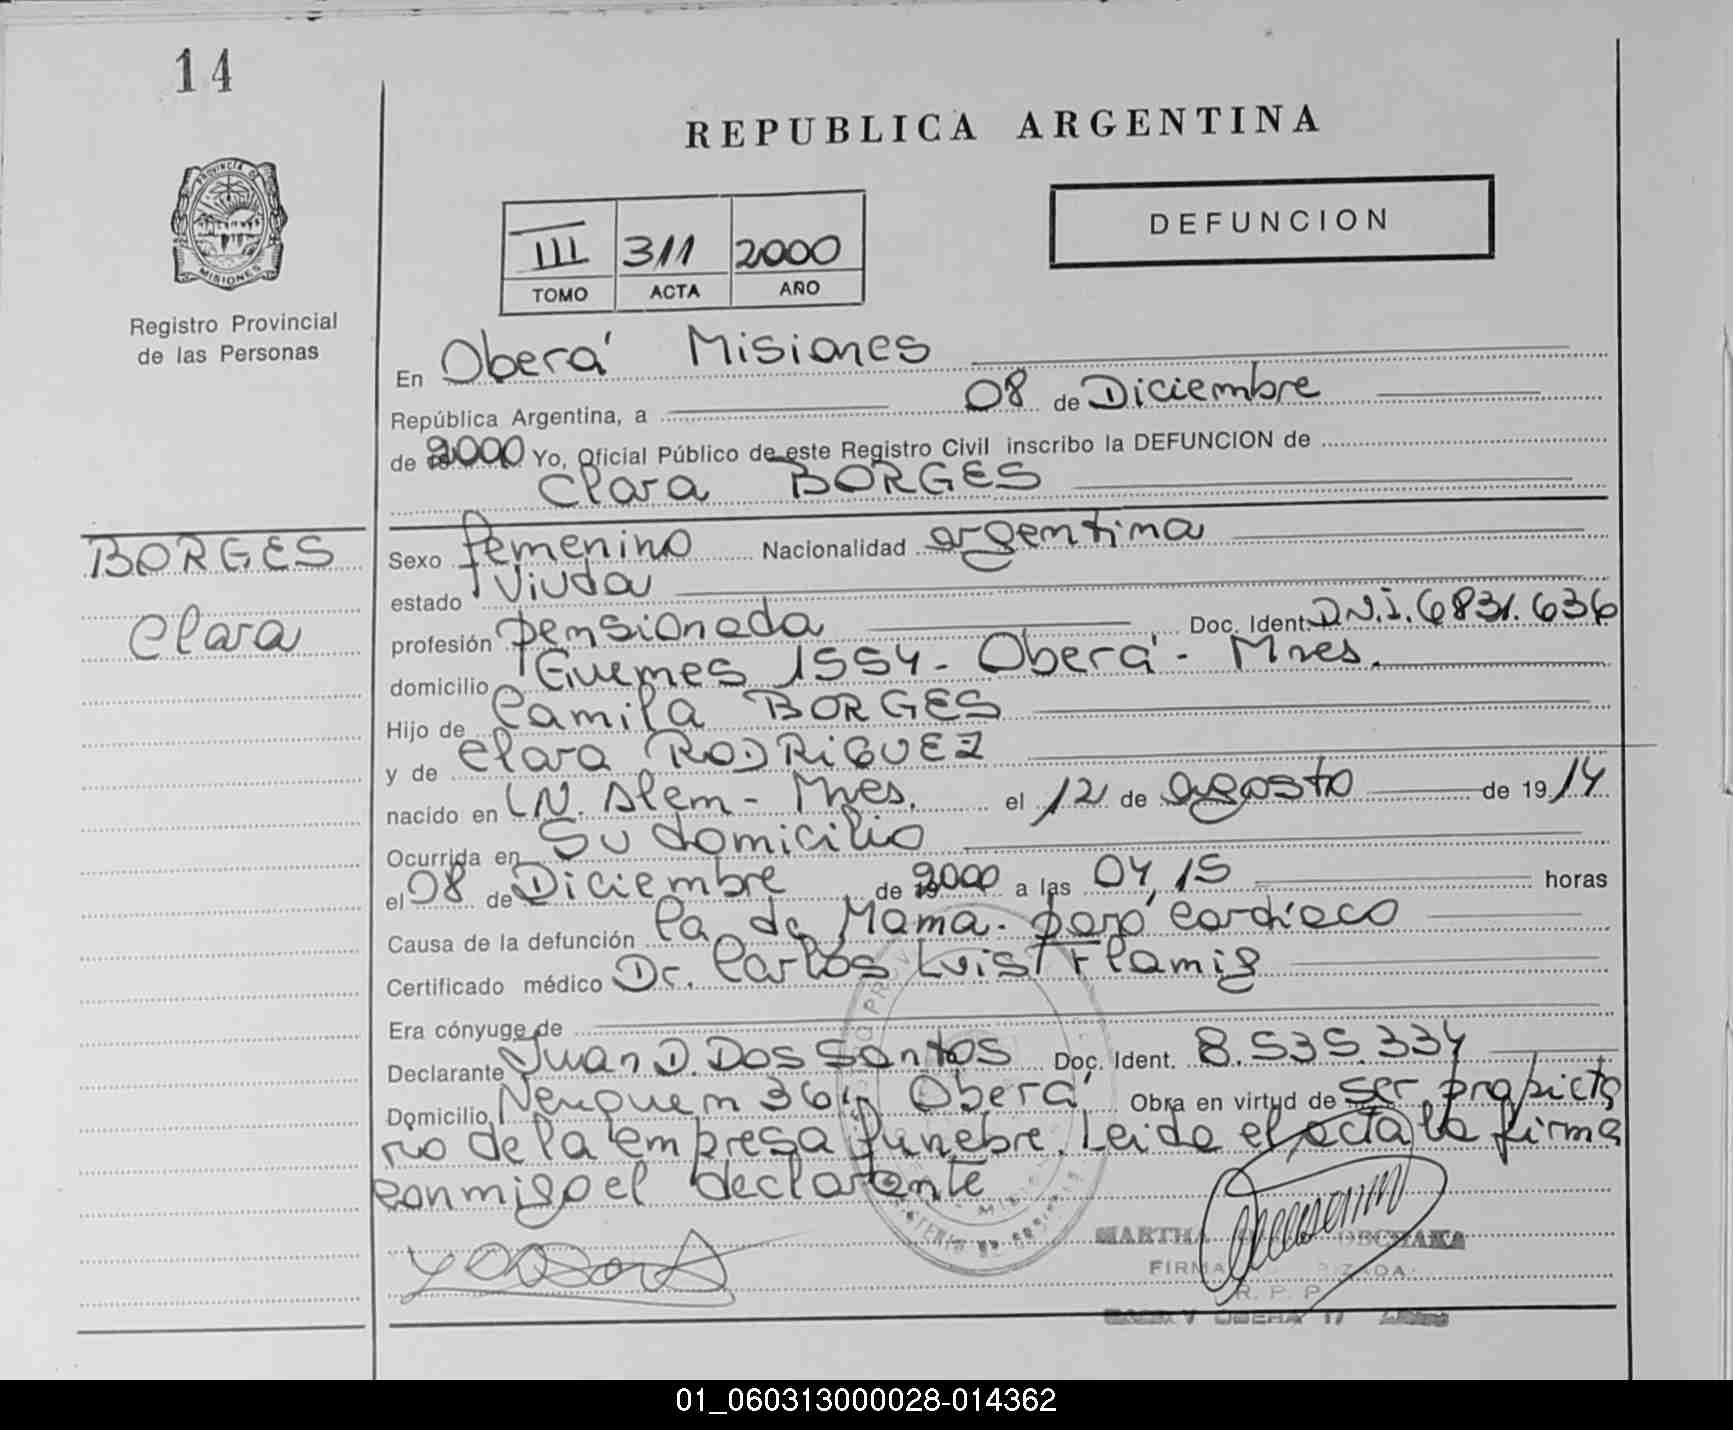 14
REPUBLICA ARGENTINA
PROVINCIA DE
MISIONES
Registro Provincial
de las Personas
III 311 2000
TOMO ACTA AÑO
DEFUNCION
En Oberá Misiones
República Argentina, a 08 de Diciembre
de 2000 Yo, Oficial Público de este Registro Civil inscribo la DEFUNCION de
Clara BORGES
BORGES
Clara
Sexo femenino Nacionalidad argentina
estado Viuda
profesión pensionada Doc. Ident. D.N.I. 6831.636
domicilio Guemes 1554 - Oberá - Mnes.
Hijo de Camila BORGES
y de Clara RODRIGUEZ
nacido en L.N. Alem - Mnes. el 12 de agosto de 1914
Ocurrida en Su domicilio
el 08 de Diciembre de 2000 a las 04,15 horas
Causa de la defunción Ca de Mama. paro cardíaco
Certificado médico Dr. Carlos Luis Flamig
Era cónyuge de
Declarante Juan D. Dos Santos Doc. Ident. 8.535.334
Domicilio Neuquem 364 Oberá Obra en virtud de ser propieta
rio de la empresa fúnebre. Leida el acta la firma
conmigo el declarante
MARTHA
FIRMA
R. P. P.
OBERA
01_060313000028-014362